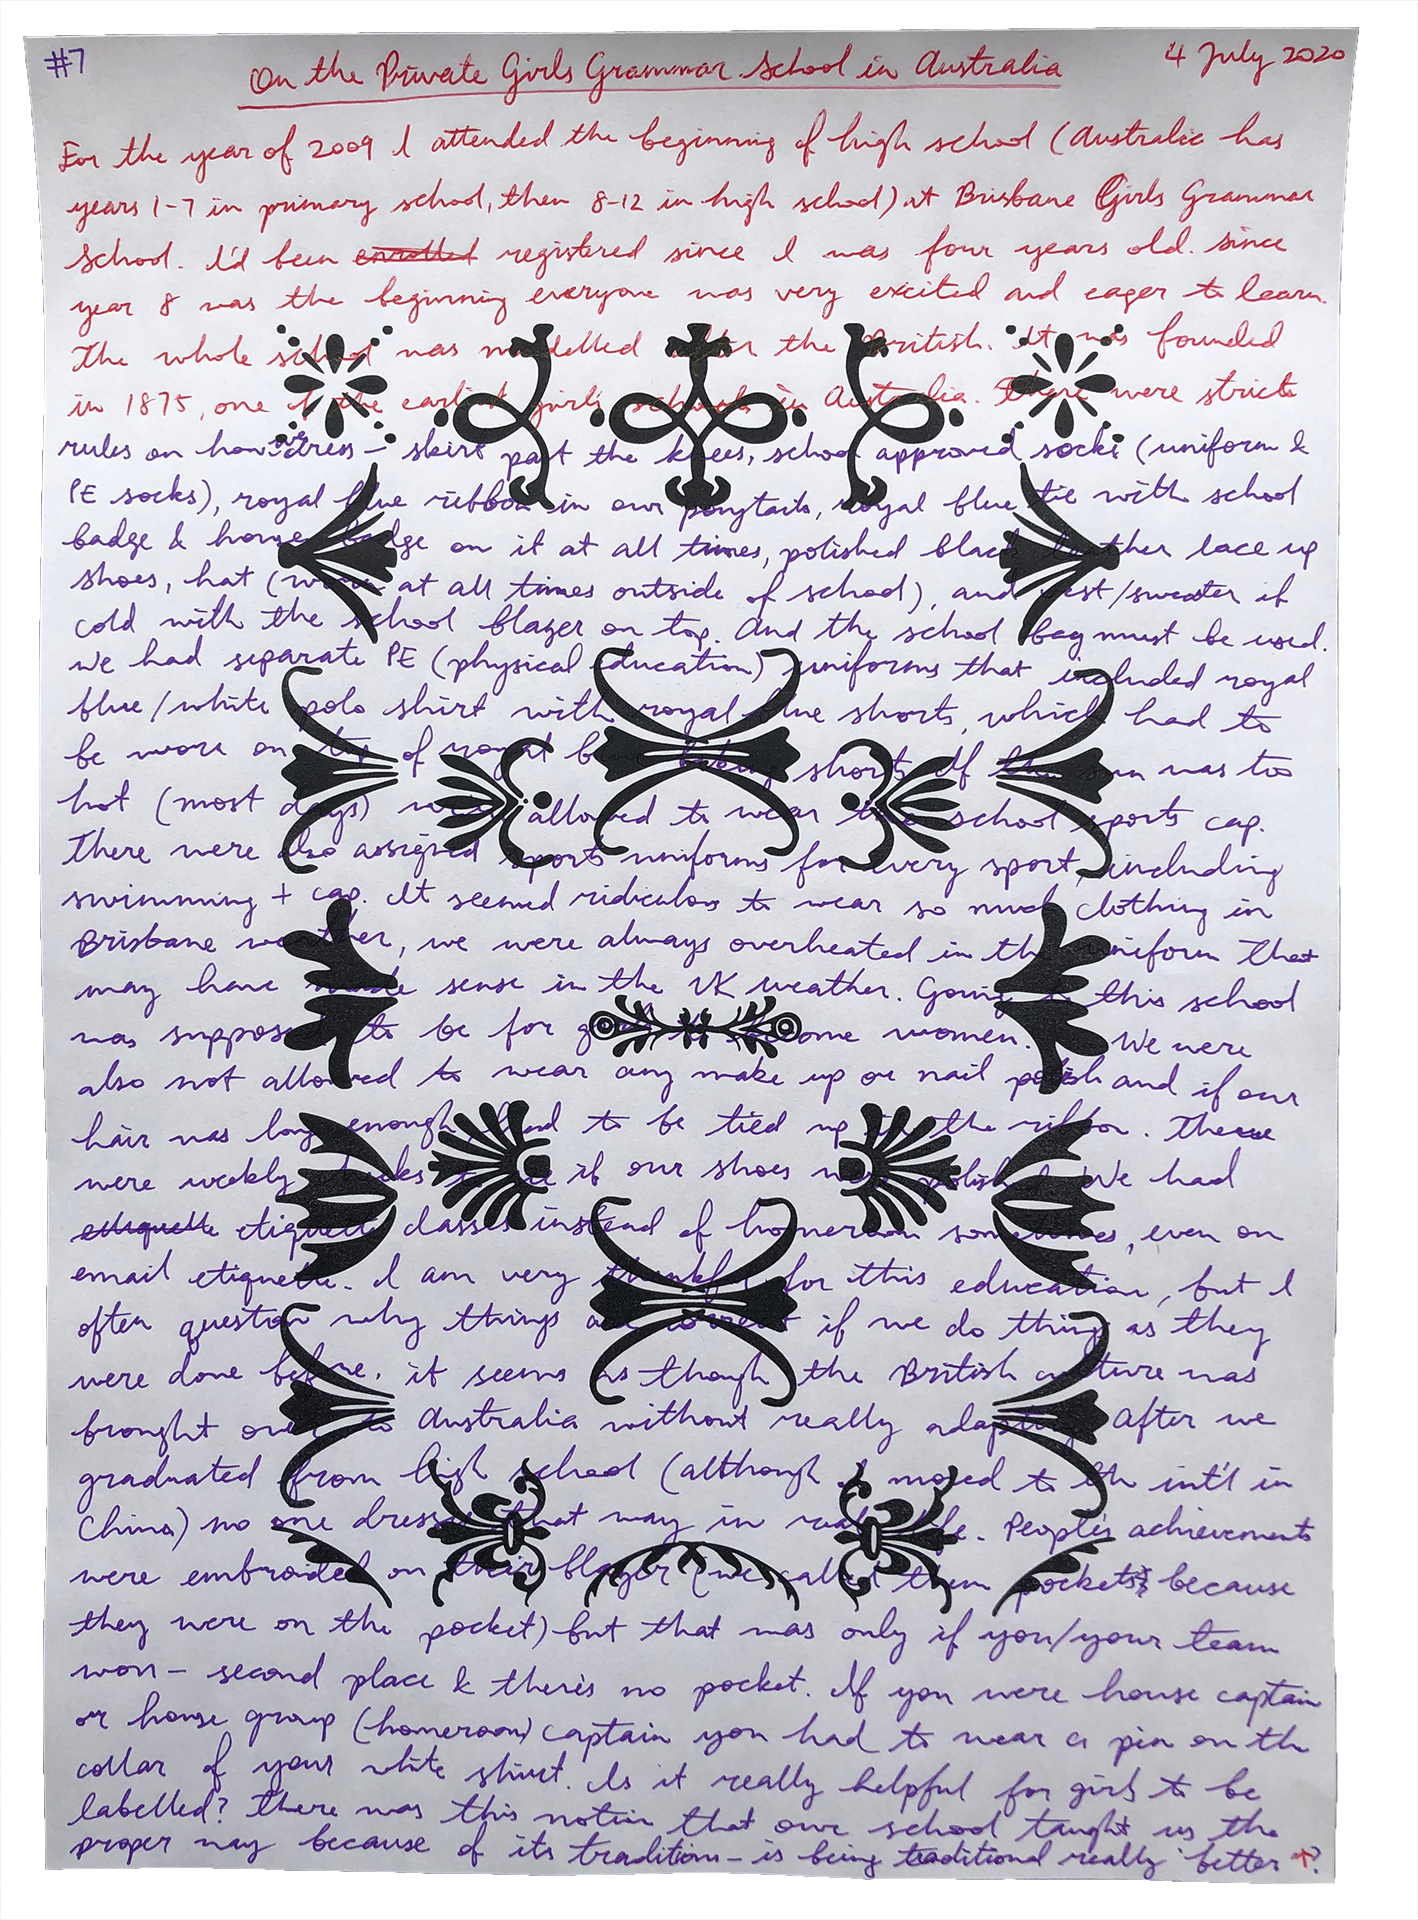 #7 On the Private Girls Grammar School in Australia 4 July 2020
For the year of 2009 I attended the beginning of high school (Australia has
years 1-7 in primary school, then 8-12 in high school) at Brisbane Girls Grammar
School. I'd been enrolled registered since I was four years old. Since
year 8 was the beginning everyone was very excited and eager to learn.
The whole school was modelled after the British. It was founded
in 1875, one of the earliest girls schools in Australia. There were strict
rules on how we dress – skirt past the knees, school approved socks (uniform &
PE socks), royal blue ribbon in our ponytails, royal blue tie with school
badge & house badge on it at all times, polished black leather lace up
shoes, hat (worn at all times outside of school), and vest/sweater if
cold with the school blazer on top. And the school bag must be used.
We had separate PE (physical education) uniforms that included royal
blue/white polo shirt with royal blue shorts, which had to
be wore on top of royal blue shorts. If the sun was too
hot (most days) were allowed to wear the school sports cap.
There were also assigned sports uniforms for every sport, including
swimming + cap. It seemed ridiculous to wear so much clothing in
Brisbane weather, we were always overheated in the uniform that
may have made sense in the UK weather. Going to this school
was supposed to be for girls to become women. We were
also not allowed to wear any make up or nail polish and if our
hair was long enough, had to be tied up in the ribbon. There
were weekly checks to see if our shoes were polished. We had
etiquette etiquette classes instead of homeroom sometimes, even on
email etiquette. I am very thankful for this education, but I
often question why things are correct if we do things as they
were done before. it seems as though the British culture was
brought over to Australia without really adapting. After we
graduated from high school (although I moved to the int'l in
China) no one dresses that way in real life. People's achievements
were embroided on their blazer (we called them pockets because
they were on the pocket) but that was only if you/your team
won – second place & there's no pocket. If you were house captain
or house group (homeroom) captain you had to wear a pin on the
collar of your white shirt. Is it really helpful for girls to be
labelled? There was this notion that our school taught us the
proper way because of its traditions – is being traditional really better?